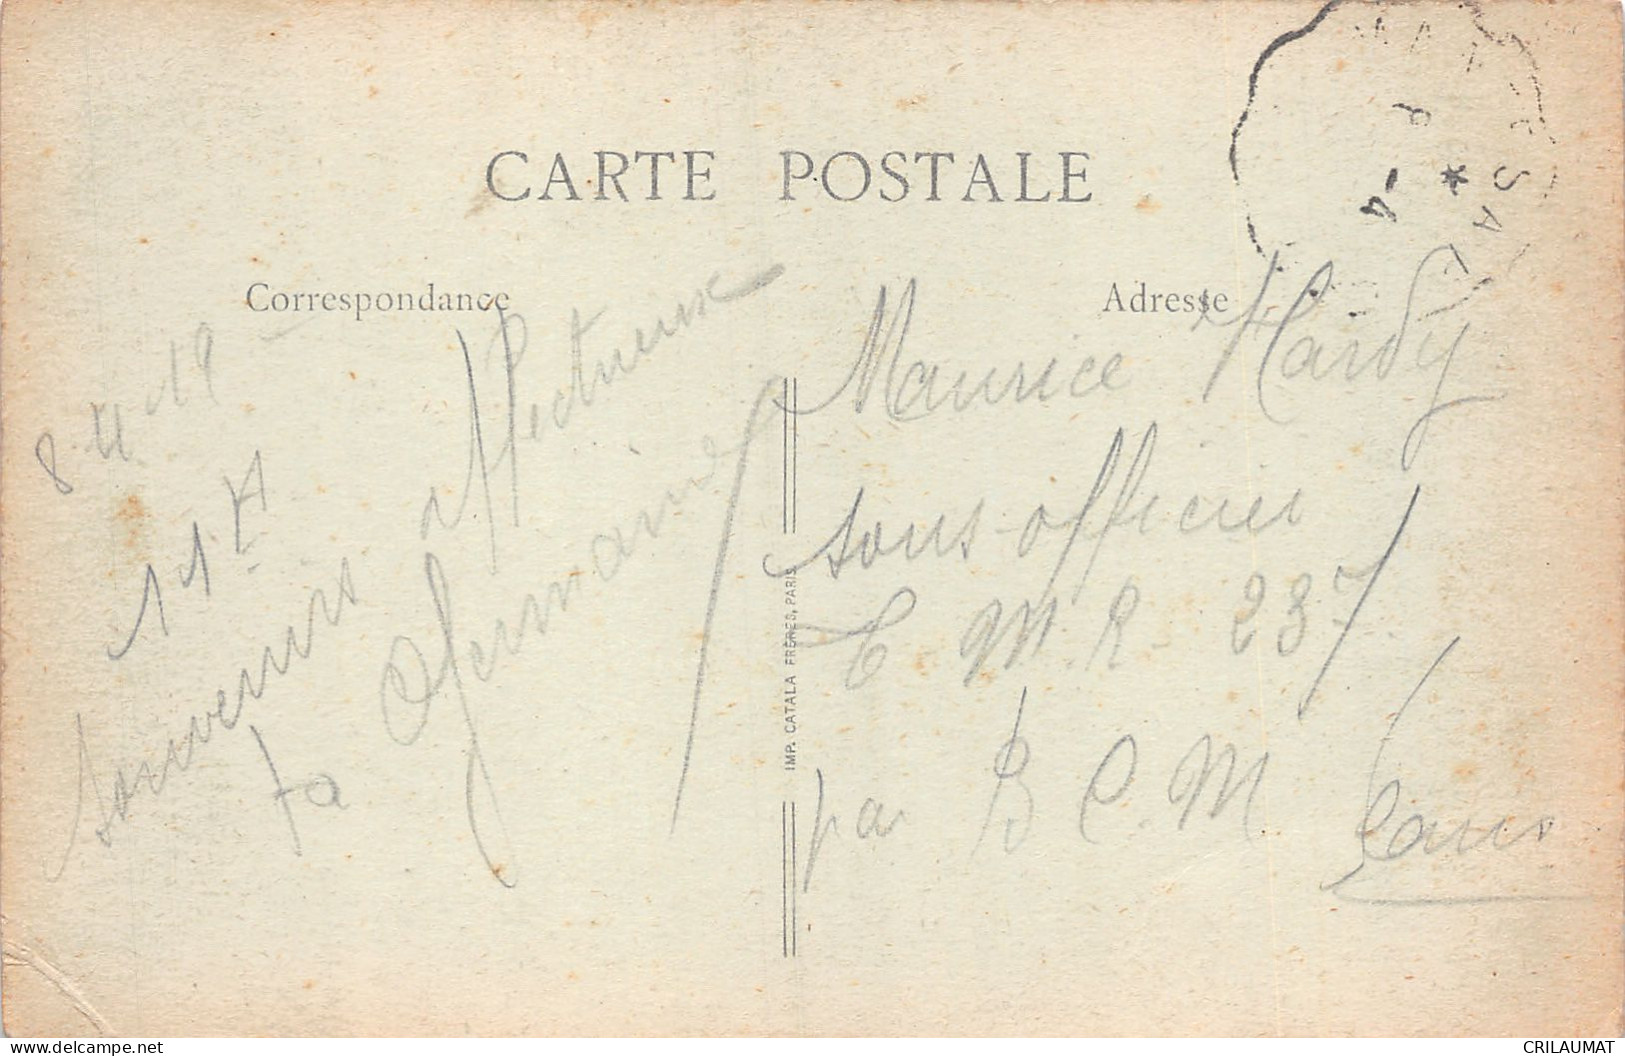 CARTE POSTALE
Correspondance
Adresse
8-4-19
11H
Souvenirs affectueux
Ta Germaine
Maurice Hardy
sous-officier
T. M. R. 237
par B C M Paris
IMP. CATALA FRÈRES, PARIS
delcampe.net
CRILAUMAT